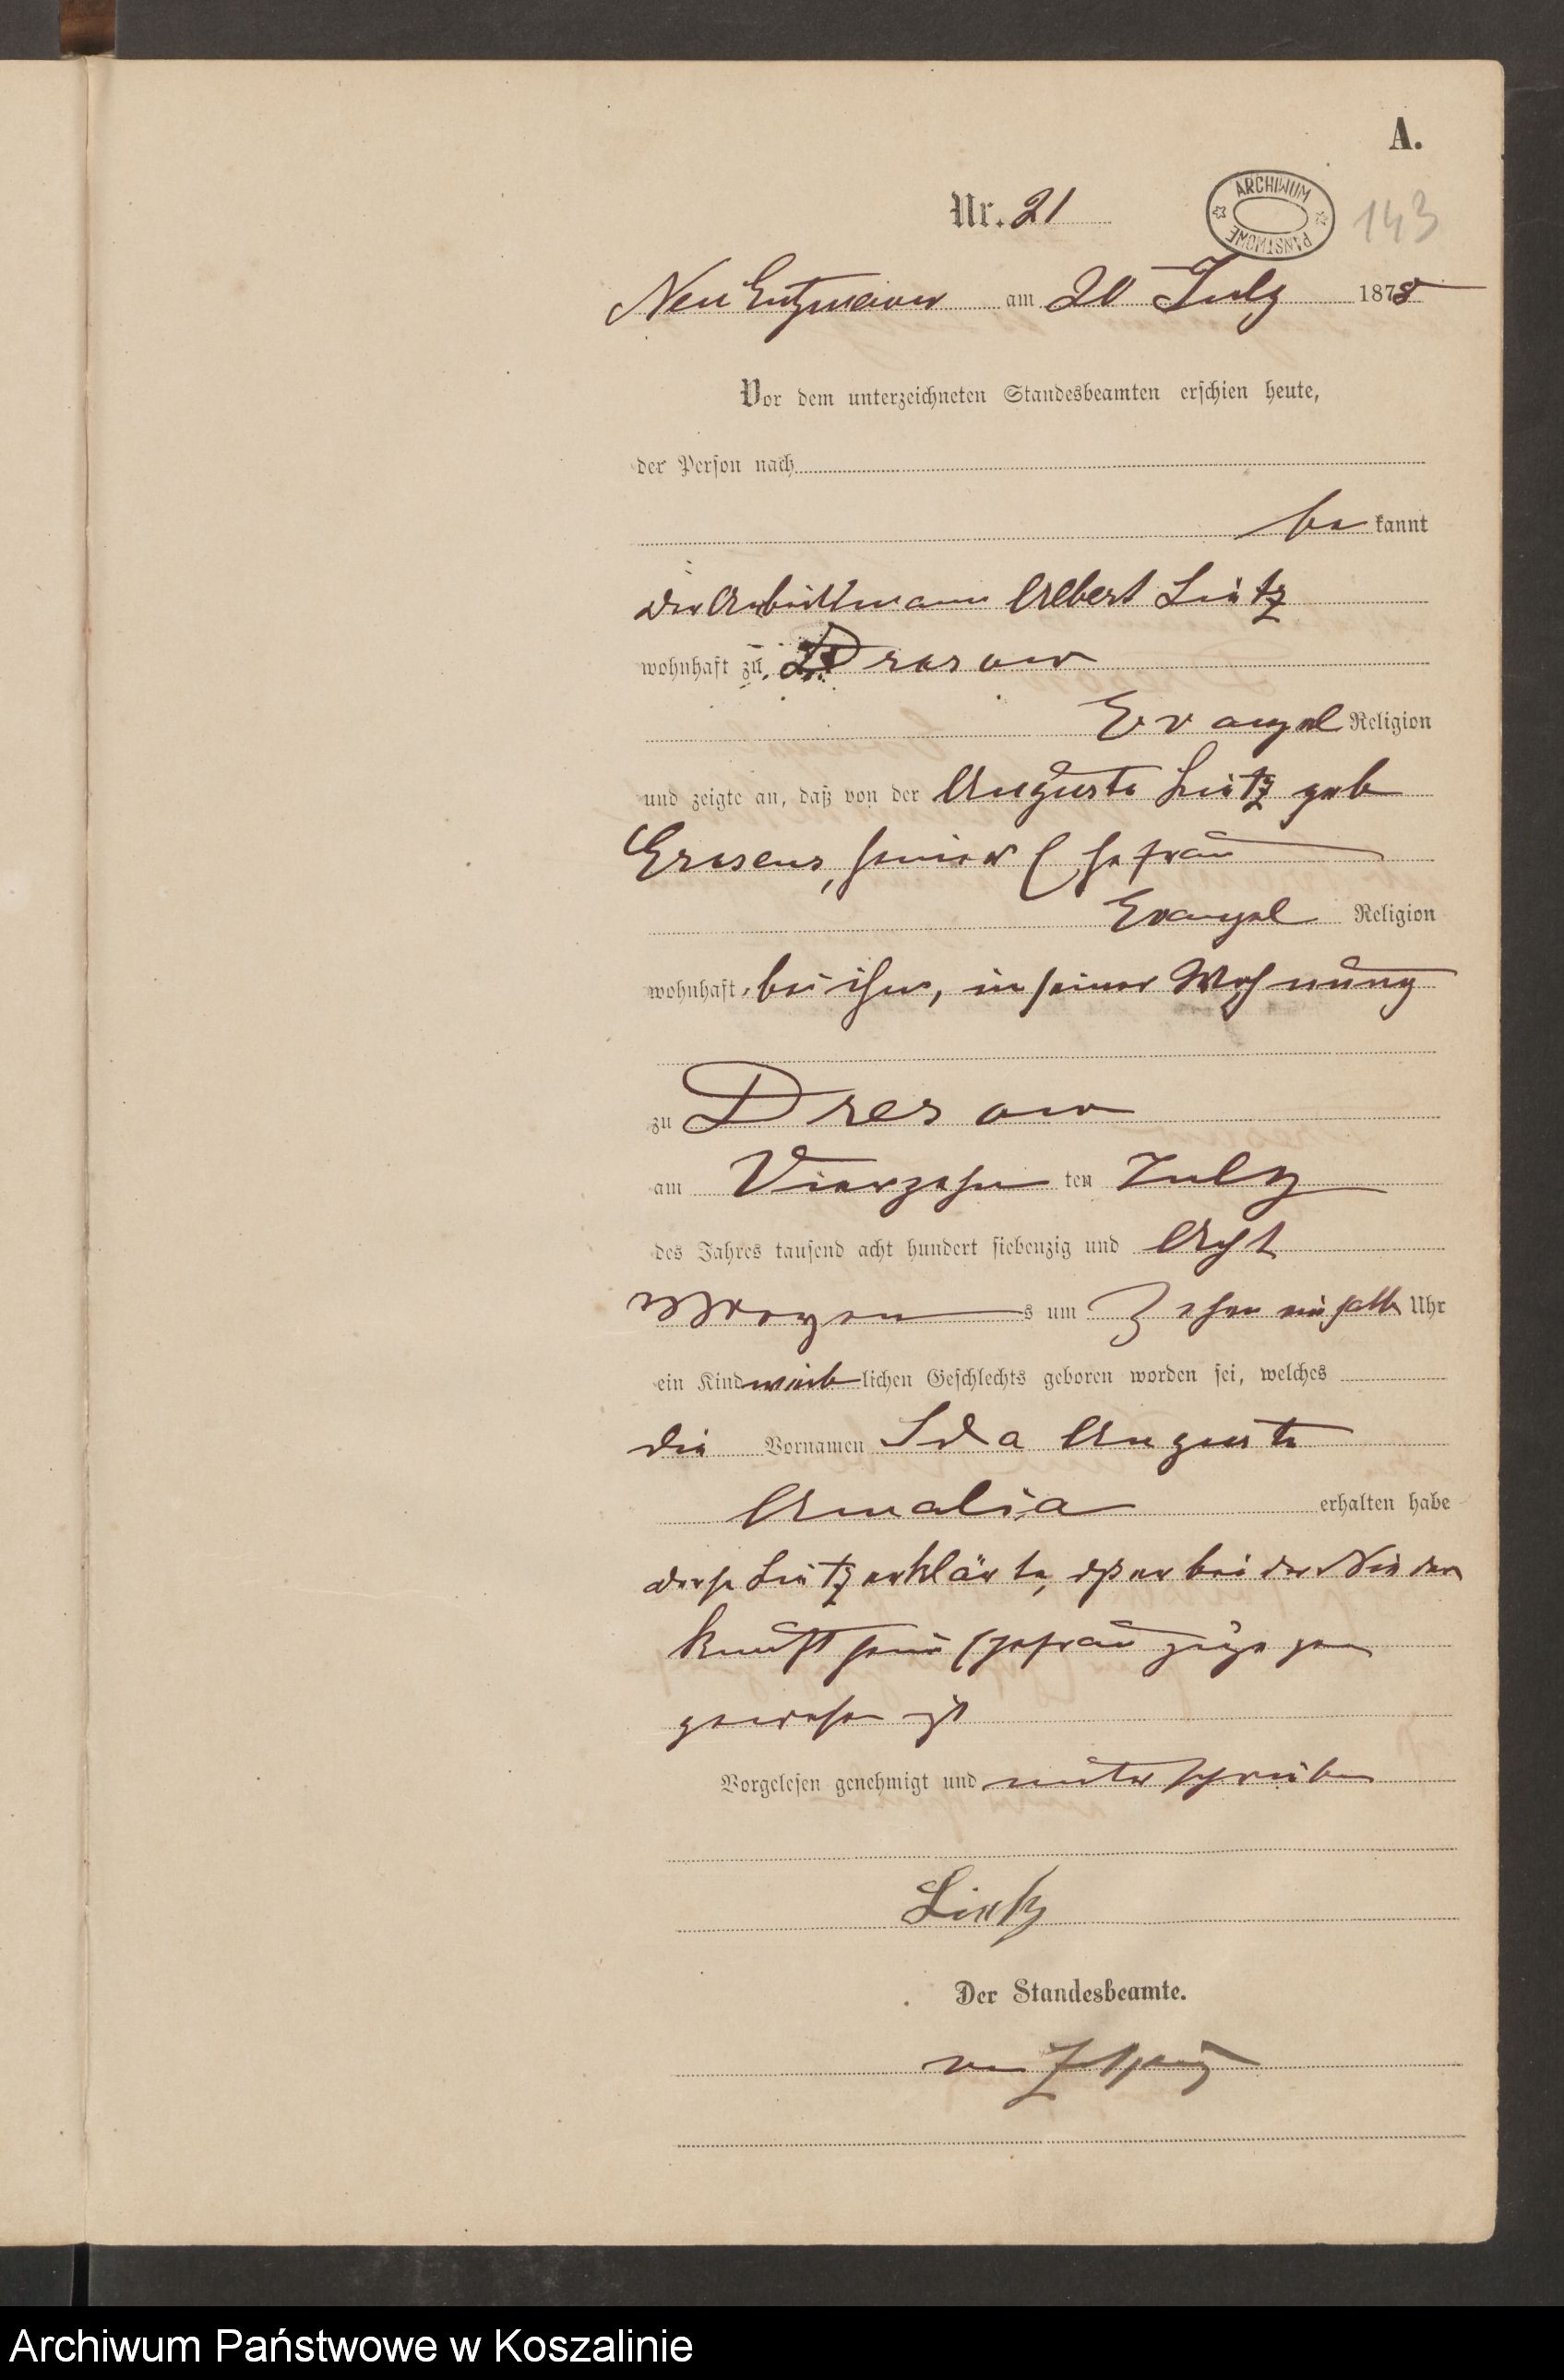 A.
Nr. 21
ARCHIWUM PAŃSTWOWE
143
Neu am 20 July 1878
Vor dem unterzeichneten Standesbeamten erschien heute,
der Person nach
be kannt
der Arbeitsmann Albert
wohnhaft zu Dresow
Evangel Religion
und zeigte an, daß von der Auguste geb
seiner Ehefrau
Evangel Religion
wohnhaft bei ihm, in seiner Wohnung
zu Dresow
am Vierzehn ten July
des Jahres tausend acht hundert siebenzig und Acht
Morgen s um Zehn ein halb Uhr
ein Kind weib lichen Geschlechts geboren worden sei, welches
die Vornamen Ida Auguste
Amalia erhalten habe
erklärte, daß er bei der Nieder
kunft seiner Ehefrau zugegen
gewesen ist
Vorgelesen genehmigt und unterschrieben
Der Standesbeamte.
Archiwum Państwowe w Koszalinie